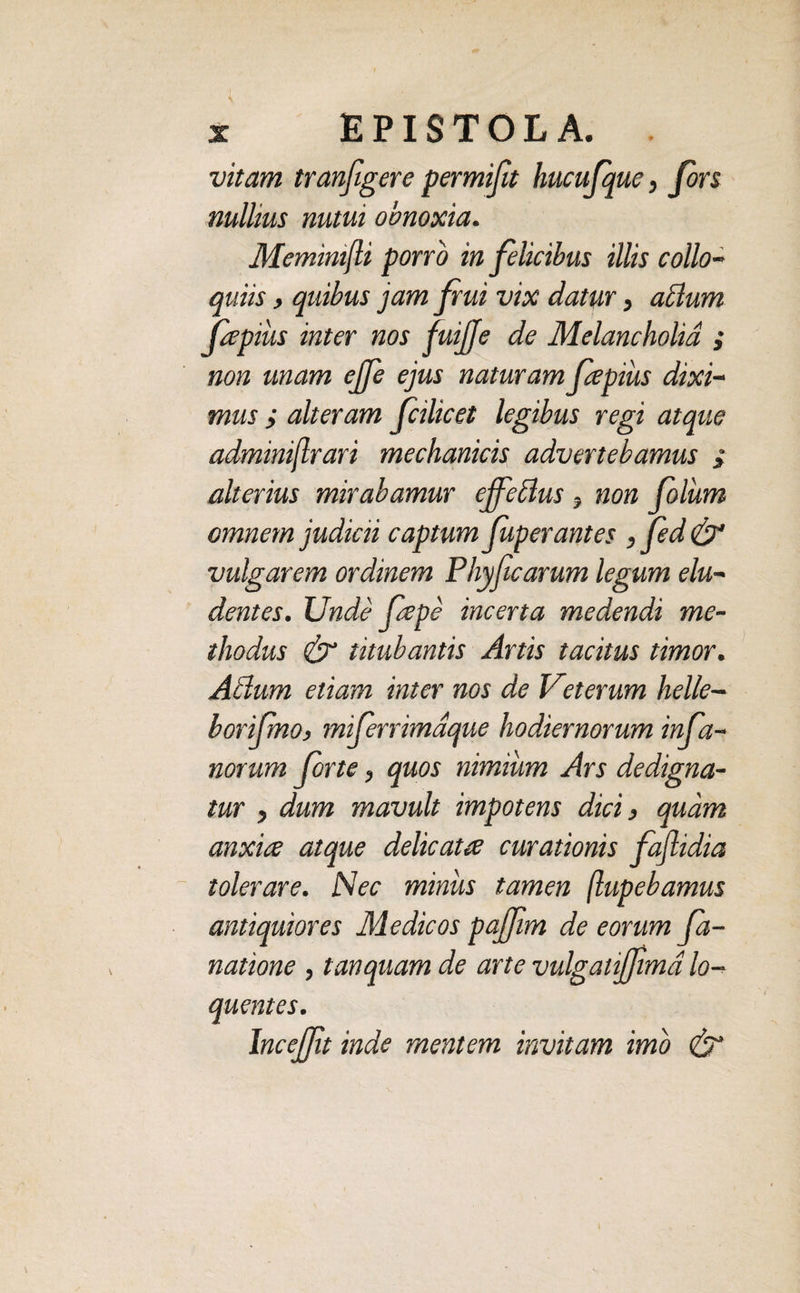 x EPISTOLA.
vitam tranſigere permiſit hucuſque, ſors
nullius nutui obnoxia.
Meminiſti porrò in felicibus illis collo-
quiis, quibus jam frui vix datur, actum
ſæpiùs inter nos fuiſſe de Melancholiâ;
non unam eſſe ejus naturam ſæpiùs dixi-
mus; alteram ſcilicet legibus regi atque
adminiſtrari mechanicis advertebamus;
alterius mirabamur effectus, non ſolùm
omnem judicii captum ſuperantes, ſed &
vulgarem ordinem Phyſicarum legum elu-
dentes. Undè ſæpè incerta medendi me-
thodus & titubantis Artis tacitus timor.
Actum etiam inter nos de Veterum helle-
boriſmo, miſerrimâque hodiernorum inſa-
norum ſorte, quos nimiùm Ars dedigna-
tur, dum mavult impotens dici, quàm
anxiæ atque delicatæ curationis faſtidia
tolerare. Nec minùs tamen ſtupebamus
antiquiores Medicos paſſim de eorum ſa-
natione, tanquam de arte vulgatiſſimâ lo-
quentes.
Inceſſit inde mentem invitam imò &